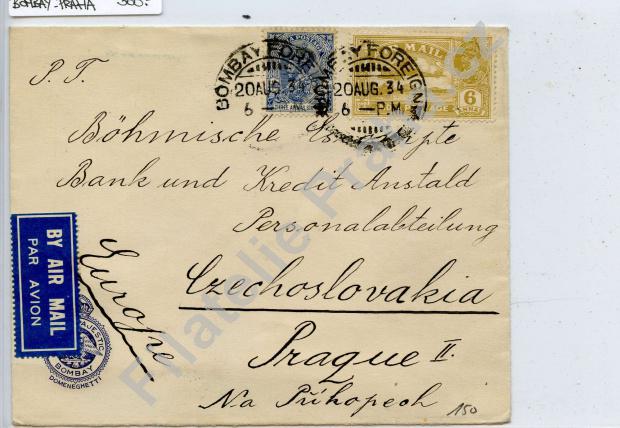 BOMBAY - PRAHA 300:-
P. T.
BOMBAY FOREIGN
20 AUG. 34
6 —
BOMBAY FOREIGN
20 AUG. 34
6 —P.M.
AIR MAIL
6
THREE ANNAS
Böhmische
Bank und Kredit Anstald
Personalabteilung
Czechoslovakia
Prague II.
Na Příkopech
Europe
BY AIR MAIL
PAR AVION
MAJESTIC
BOMBAY
DOMENEGHETTI
150
Filatelie Praha